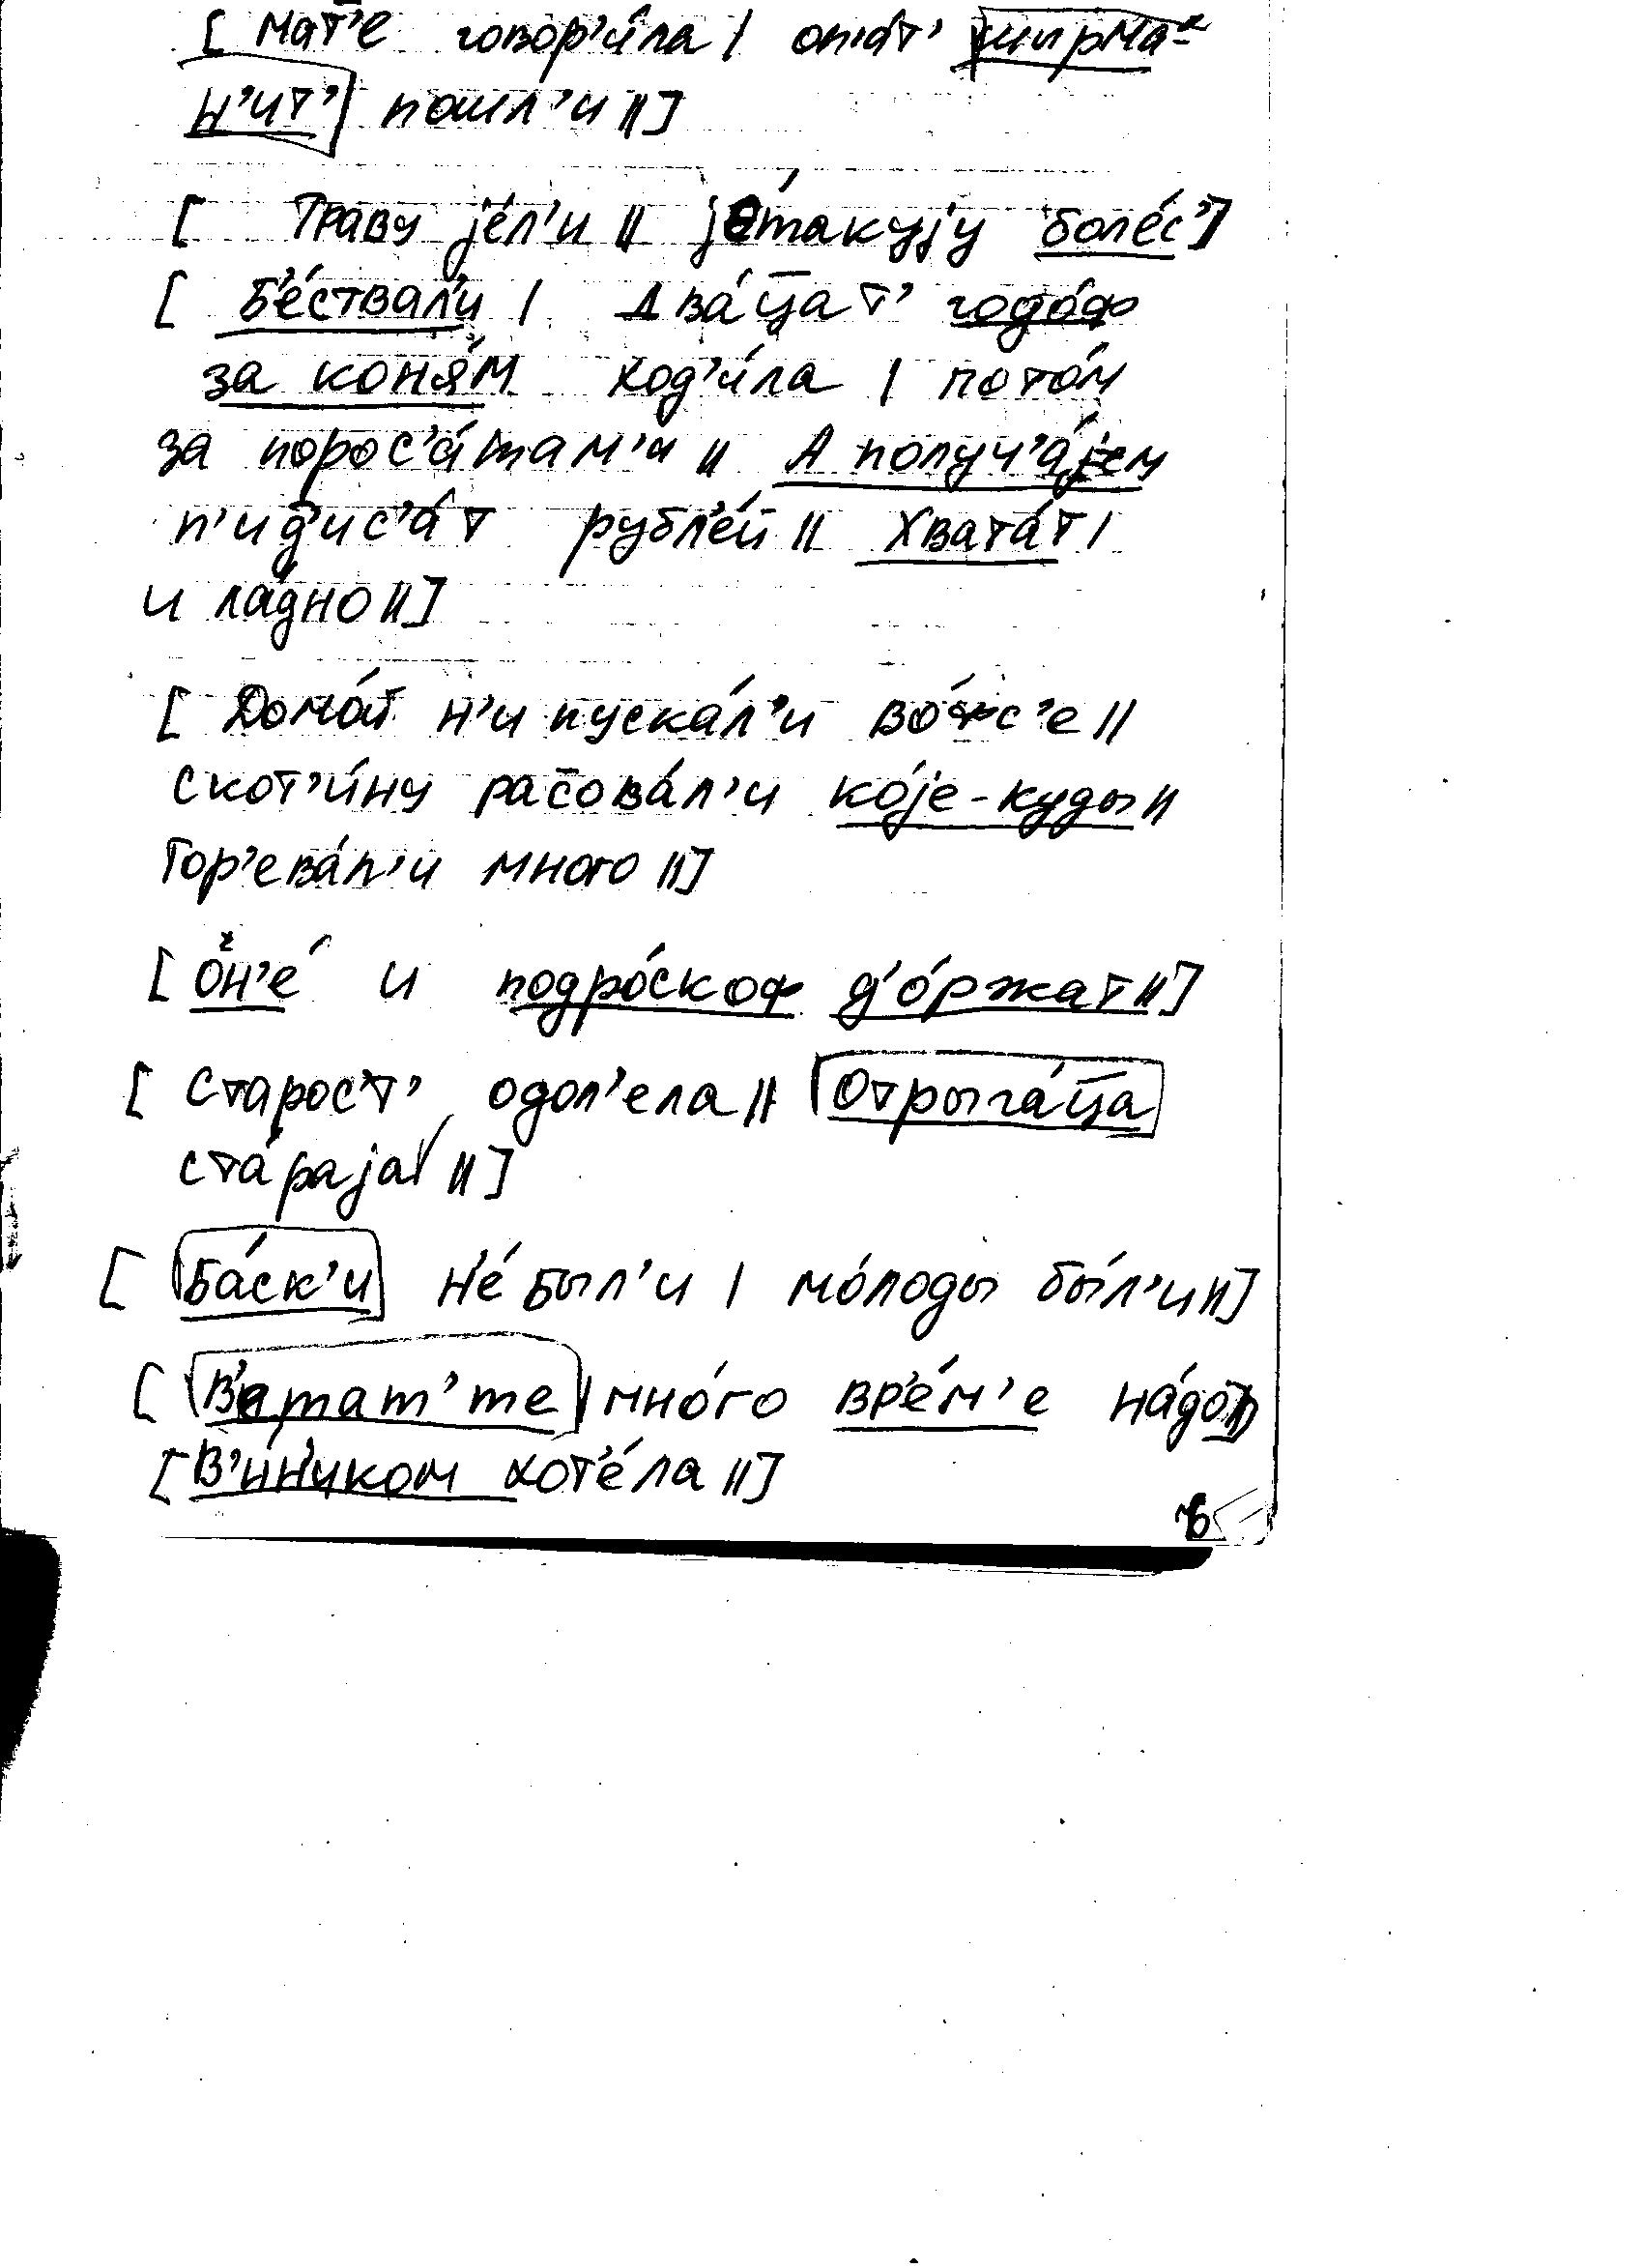 [ мат'е говор'и́ла | оп'а́т' ширма-
н'ит' пошл'и ||]
[ Траву је́л'и || је́такују боле́с']
[ б'е́ствал'и | два́ц̄ат' годо́ф
за коня́м ход'и́ла | пото́м
за порос'а́там'и || А получ'а́јем
п'ид'ис'а́т рубл'е́й || Хвата́т |
и ла́дно ||]
[ Домо́й н'и пуска́л'и во́фс'е ||
скот'и́ну расова́л'и ко́је-куды ||
Гор'ева́л'и много ||]
[ он'е́ и подро́скоф д'о́ржат ||]
[ Старос'т' одол'ела || Отрыга́ц̄а
ста́раја ||]
[ Ба́ск'и н'е́ был'и | мо́лоды бы́л'и ||]
[ В'атат'те | мно́го вр'е́м'е на́до ||]
[ В'и́н'иком хот'е́ла ||]